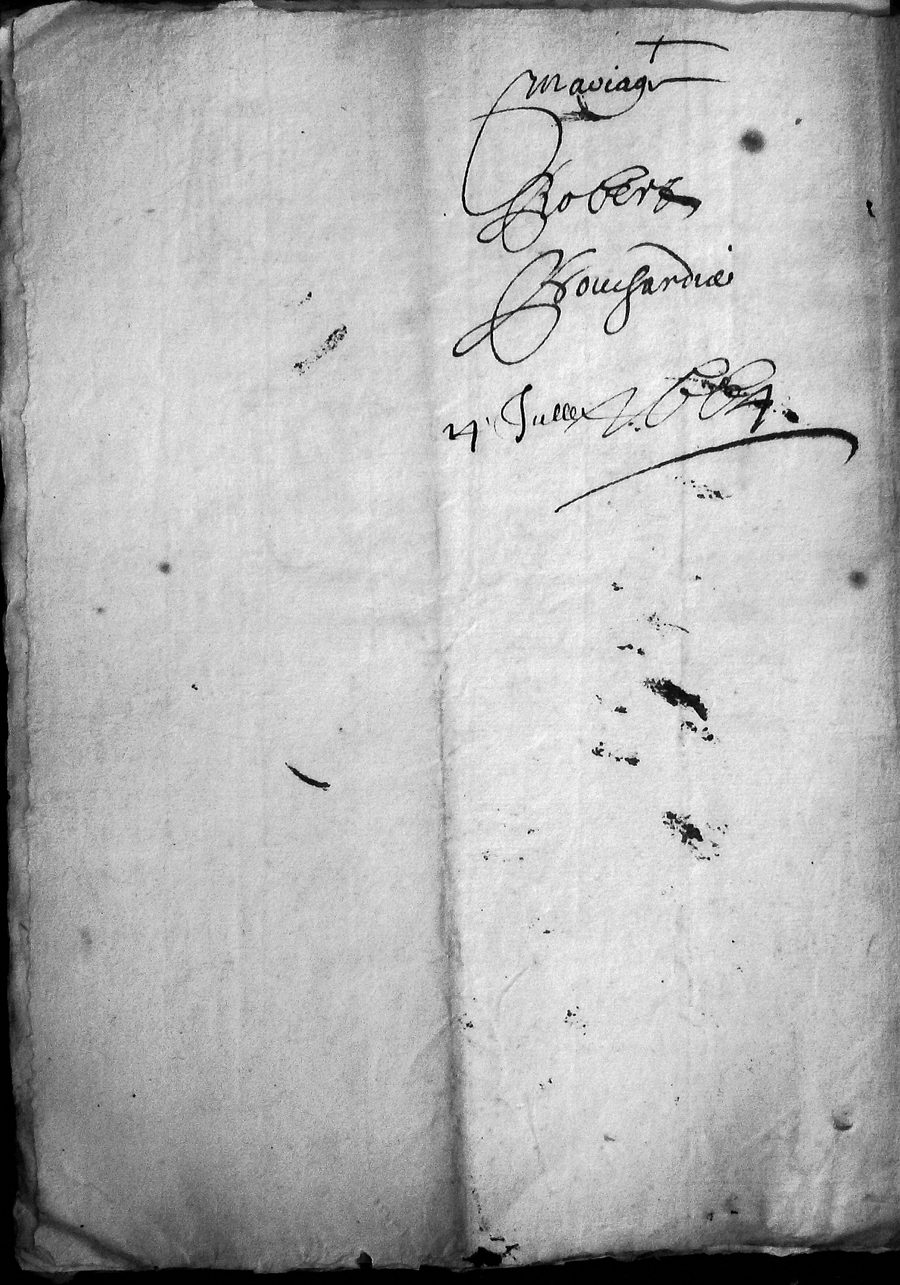 +
Mariage
Robert
Bouchardie
Jullet 1664